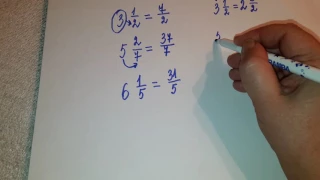 3 1/2 = 7/2
5 2/7 = 37/7
6 1/5 = 31/5
3 1/2 = 2 /2
5